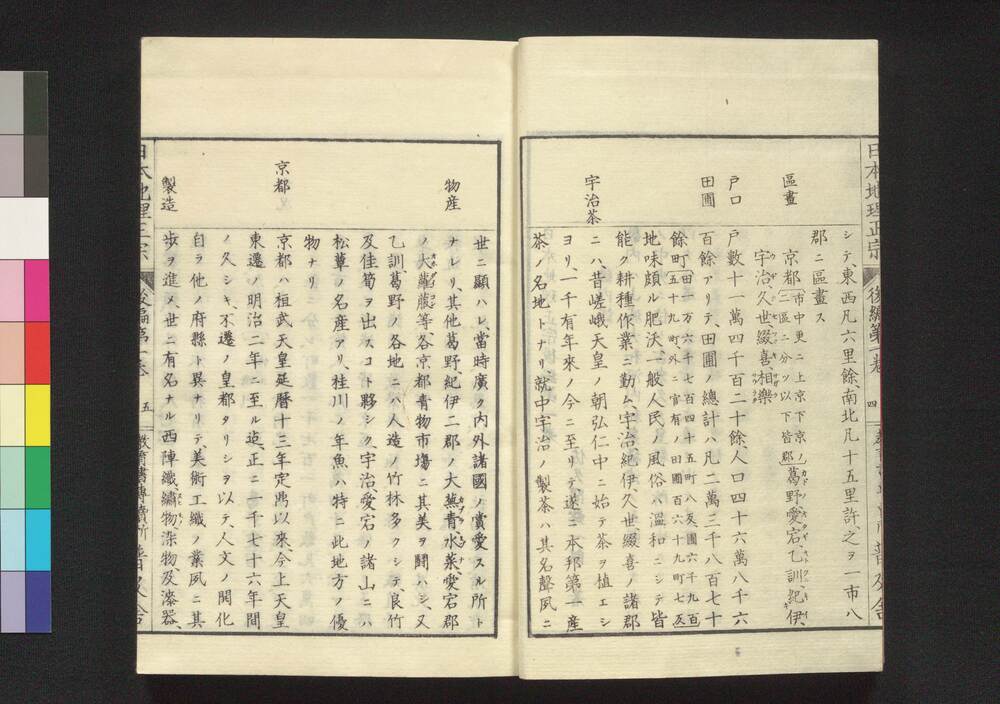 日本地理正宗
後編第一卷
四
普及舍
シテ、東西凡六里餘、南北凡十五里許、之ヲ一市八
郡ニ區畫ス
區畫
京都 市中更ニ上京下京ノ二區ニ分ツ以下皆郡 葛野、愛宕、乙訓、紀伊、
宇治、久世、綴喜、相樂
戸口
戸數十一萬四千百二十餘、人口四十六萬八千六
百餘アリテ、田圃ノ總計ハ凡二萬三千八百七十
田圃
餘町 田一万六千七百四十五町八反圃六千九百五十九町外ニ官有ノ田圃百六十九町七反
地味頗ル肥沃、一般人民ノ風俗ハ溫和ニシテ皆
能ク耕種作業ニ勤ム、宇治紀伊久世綴喜ノ諸郡
宇治茶
ニハ、昔嵯峨天皇ノ朝弘仁中ニ始テ茶ヲ植エシ
ヨリ、一千有年來ノ今ニ至リテ遂ニ本邦第一産
茶ノ名地トナリ就中宇治ノ製茶ハ其名聲夙ニ
世ニ顯ハレ、當時廣ク内外諸國ノ賞愛スル所ト
物産
ナレリ、其他葛野紀伊二郡ノ大蕪菁水菜、愛宕郡
ノ大蘿蔔等各京都青物市塲ニ其美ヲ鬪ハシ、又
乙訓葛野ノ各地ニハ人造ノ竹林多クシテ、良竹
及佳筍ヲ出スコト夥シク、宇治愛宕ノ諸山ニハ
松蕈ノ名産アリ、桂川ノ年魚ハ特ニ此地方ノ優
物ナリ
京都
京都ハ桓武天皇延暦十三年定鼎以來、今上天皇
東遷ノ明治二年ニ至ル迄、正ニ一千七十六年間
ノ久シキ、不遷ノ皇都タリシヲ以テ、人文ノ開化
自ラ他ノ府縣ト異ナリテ、美術工織ノ業夙ニ其
製造
歩ヲ進メ、世ニ有名ナル西陣織、繡物、染物及漆器、
日本地理正宗
後編第一卷
五
教育書専賣所 普及舍